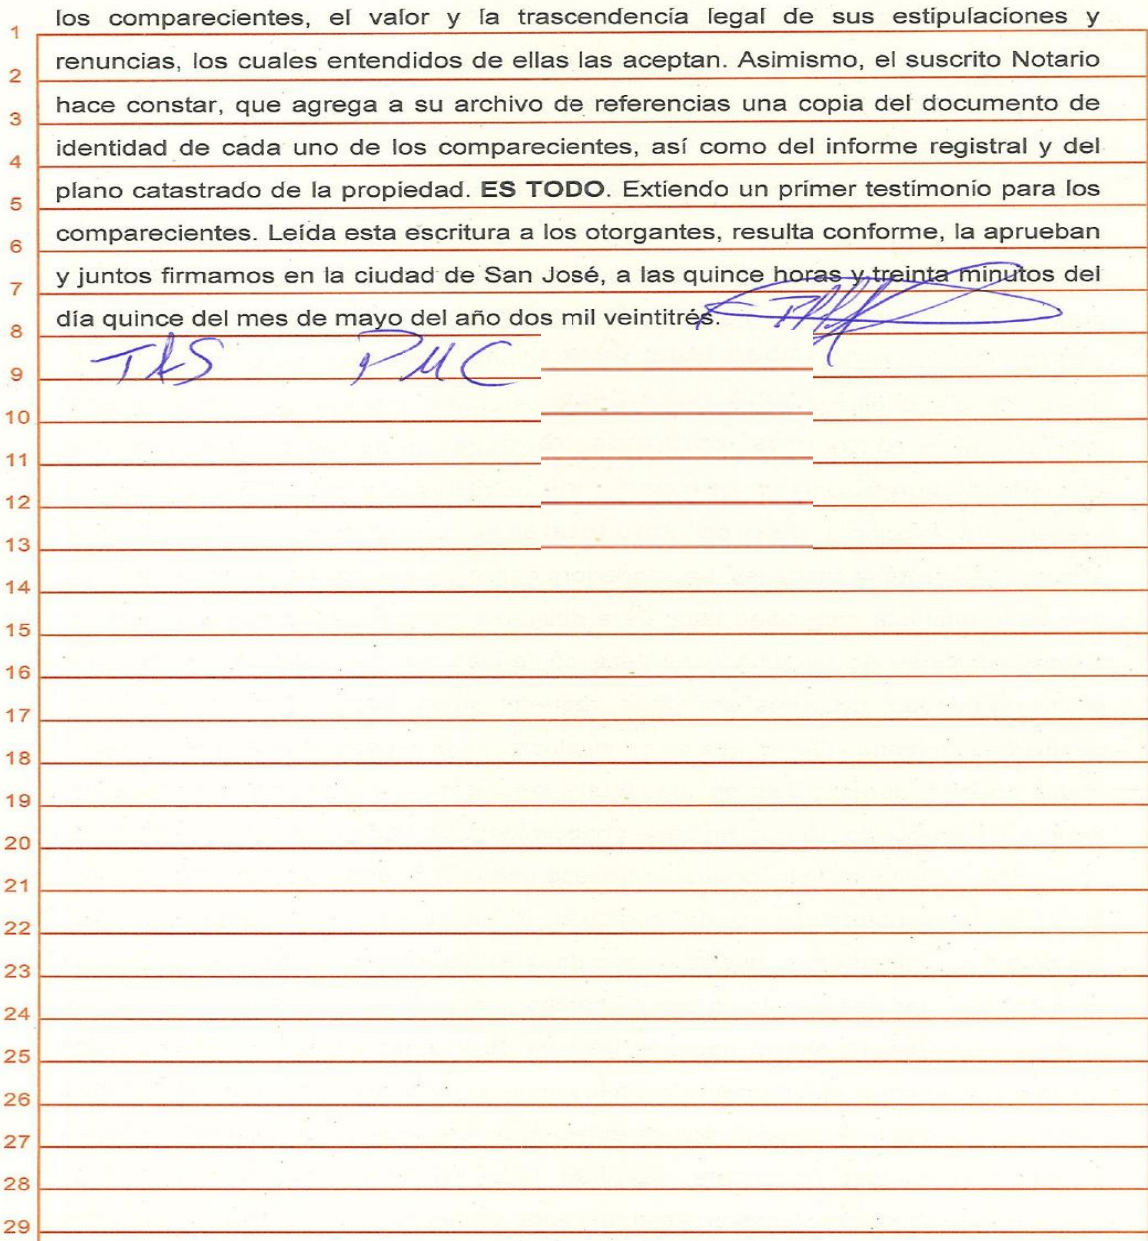 los comparecientes, el valor y la trascendencia legal de sus estipulaciones y
1
renuncias, los cuales entendidos de ellas las aceptan. Asimismo, el suscrito Notario
2
hace constar, que agrega a su archivo de referencias una copia del documento de
3
identidad de cada uno de los comparecientes, así como del informe registral y del
4
plano catastrado de la propiedad. ES TODO. Extiendo un primer testimonio para los
5
comparecientes. Leída esta escritura a los otorgantes, resulta conforme, la aprueban
6
y juntos firmamos en la ciudad de San José, a las quince horas y treinta minutos del
7
día quince del mes de mayo del año dos mil veintitrés.
8
TAS PMC
9
10
11
12
13
14
15
16
17
18
19
20
21
22
23
24
25
26
27
28
29